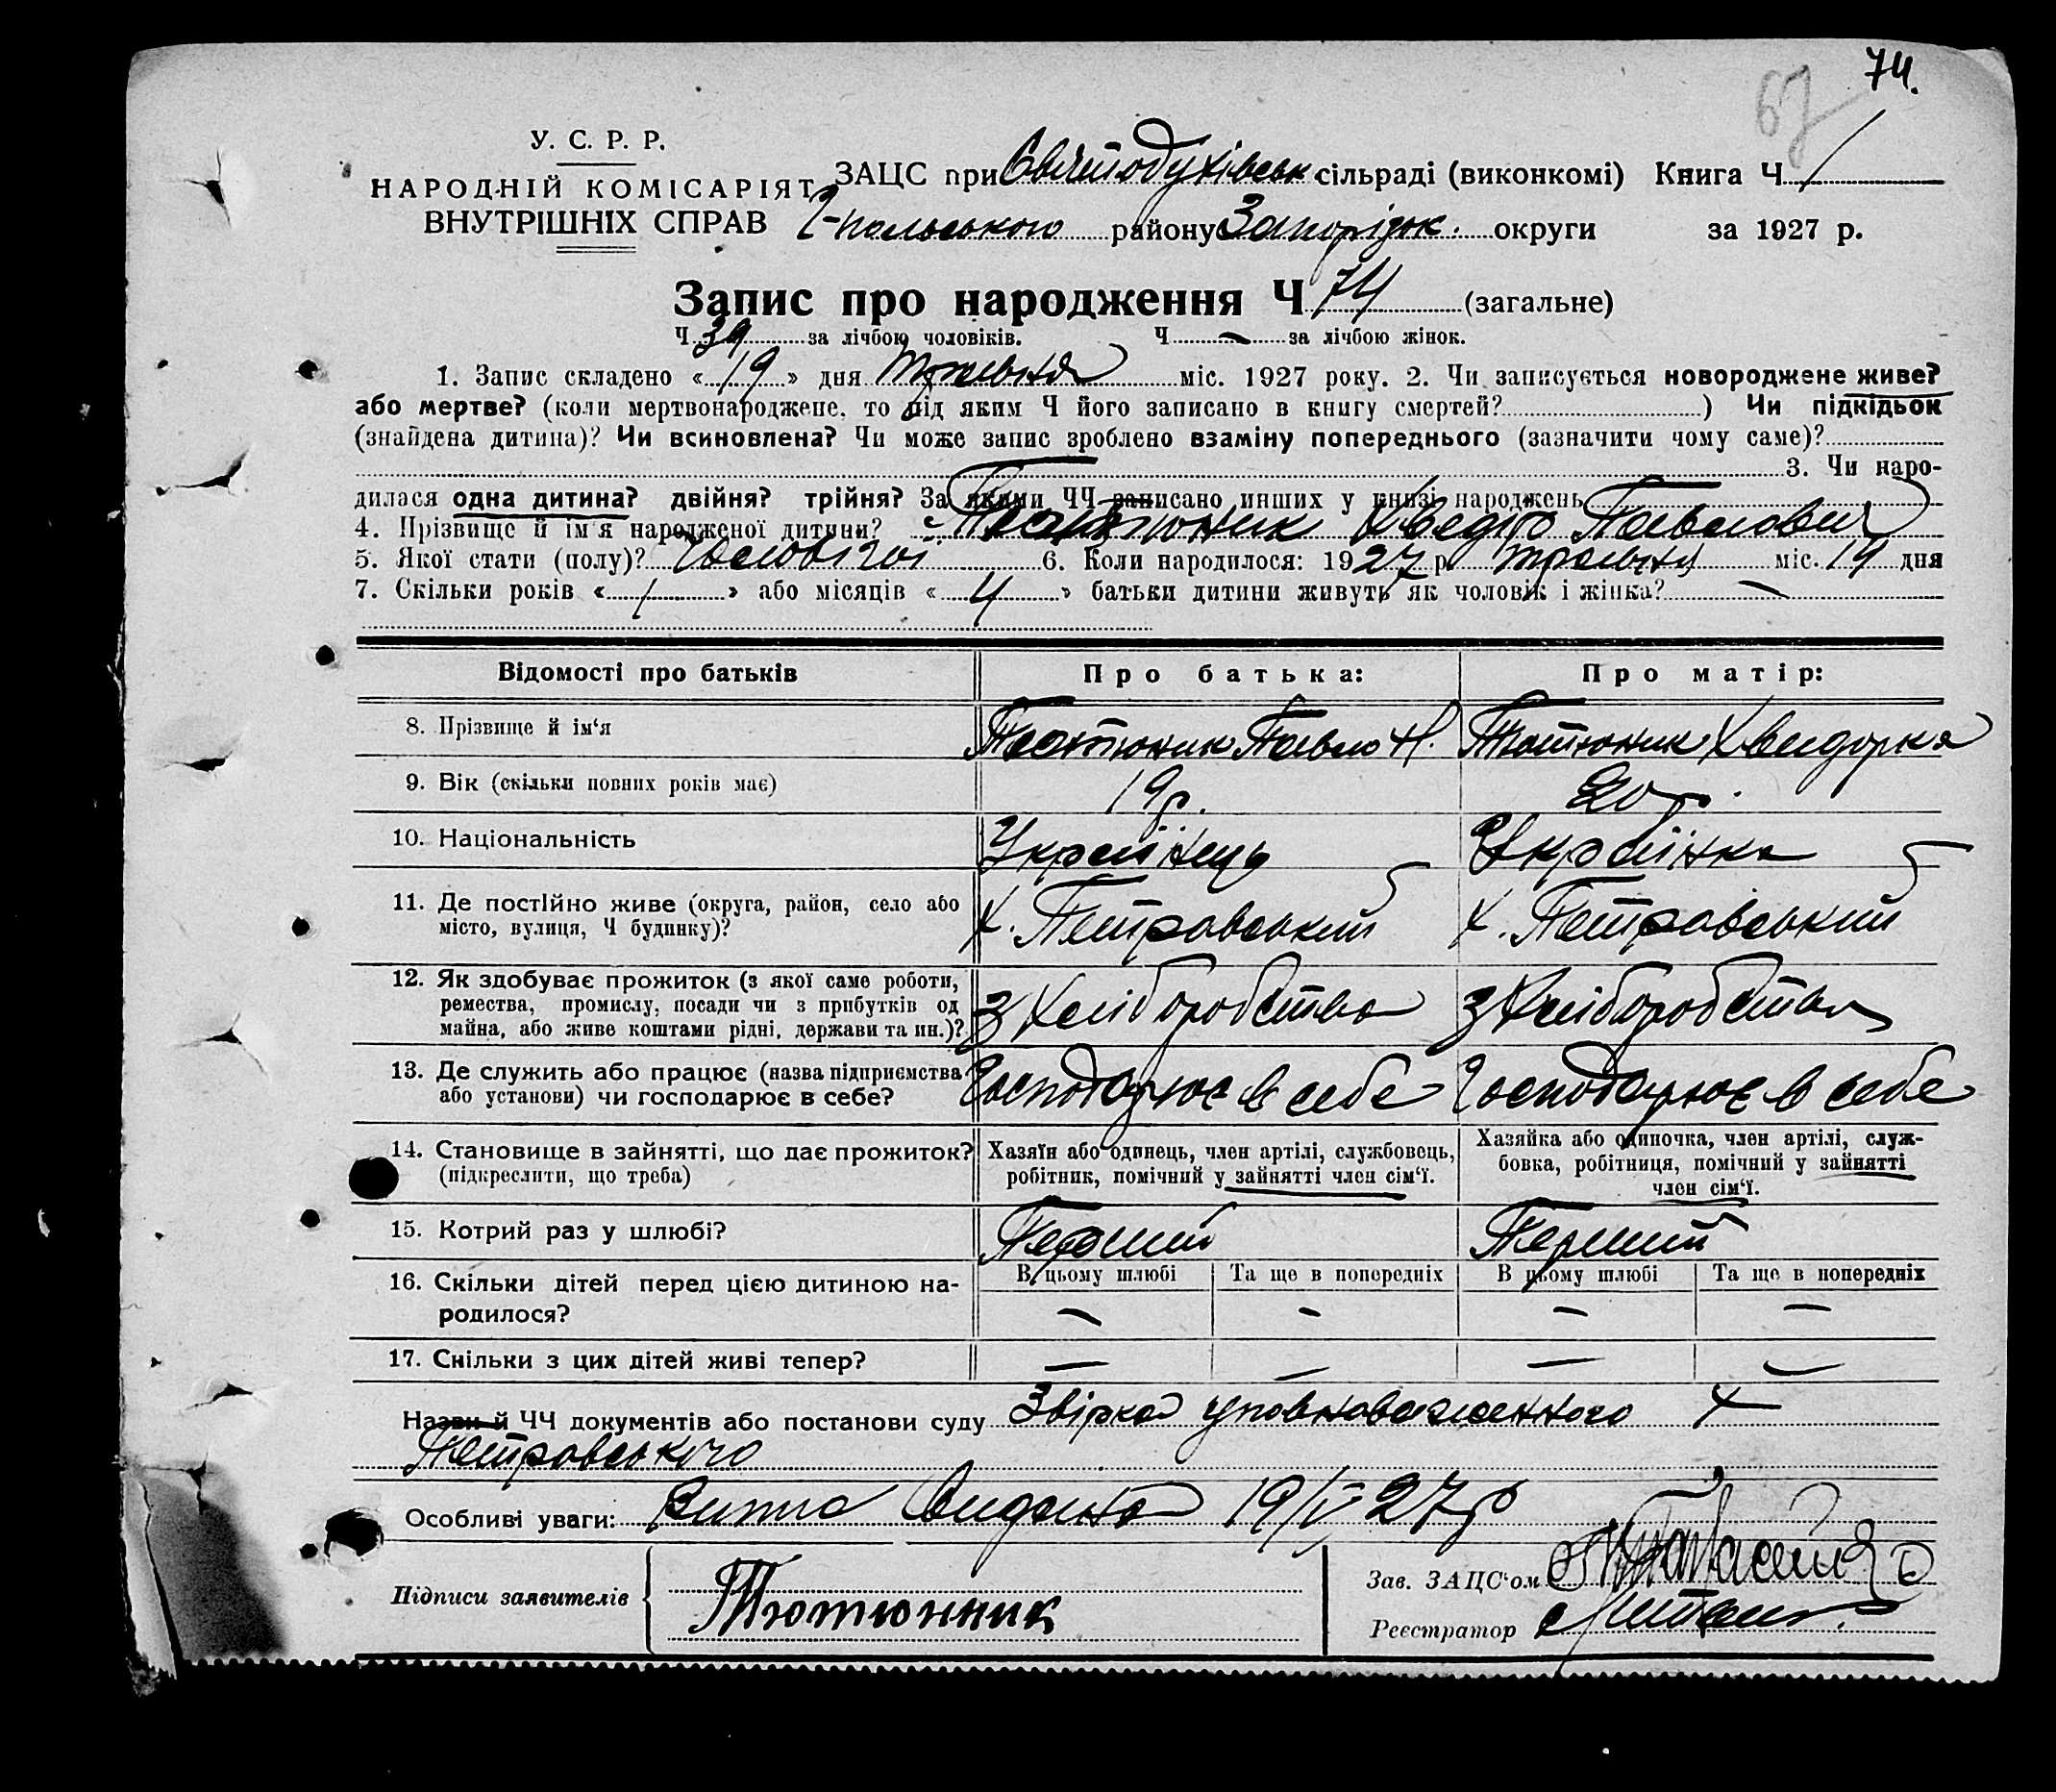 74.
67
У. С. Р. Р.
НАРОДНІЙ КОМІСАРІЯТ
ВНУТРІШНІХ СПРАВ
ЗАЦС при Святодухівськ сільраді (виконкомі) Книга Ч 1
г-польського району Запорізьк. округи за 1927 р.
Запис про народження Ч 74 (загальне)
Ч 39 за лічбою чоловіків. Ч — за лічбою жінок.
1. Запис складено «19» дня травня міс. 1927 року. 2. Чи записується новороджене живе?
або мертве? (коли мертвонароджене, то під яким Ч його записано в книгу смертей? ) Чи підкідьок
(знайдена дитина)? Чи всиновлена? Чи може запис зроблено взаміну попереднього (зазначити чому саме)?
3. Чи наро-
дилася одна дитина? двійня? трійня? За якими ЧЧ записано инших у книзі народжень
4. Прізвище й ім'я народженої дитини? Тютюник Хведір Павлович
5. Якої стати (полу)? Чоловічої 6. Коли народилося: 1927 р травня міс. 14 дня
7. Скільки років «1» або місяців «4» батьки дитини живуть як чоловік і жінка? —
Відомості про батьків Про батька: Про матір:
8. Прізвище й ім'я Тютюник Павло Н. Тютюник Хведорка
9. Вік (скільки повних років має) 19р. 20 р.
10. Національність Українець Українка
11. Де постійно живе (округа, район, село або
місто, вулиця, Ч будинку)? Х. Петровський Х. Петровський
12. Як здобуває прожиток (з якої саме роботи,
ремества, промислу, посади чи з прибутків од
майна, або живе коштами рідні, держави та ин.)? З Хліборобства З Хліборобства
13. Де служить або працює (назва підприємства
або установи) чи господарює в себе? Господарює в себе Господарює в себе
14. Становище в зайнятті, що дає прожиток?
(підкреслити, що треба)
Хазяїн або одинець, член артілі, службовець,
робітник, помічний у зайнятті член сім'ї.
Хазяйка або одиночка, член артілі, служ-
бовка, робітниця, помічний у зайнятті
член сім'ї.
15. Котрий раз у шлюбі? Перший Перший
16. Скільки дітей перед цією дитиною на-
родилося?
В цьому шлюбі Та ще в попередніх В цьому шлюбі Та ще в попередніх
— — — —
17. Скільки з цих дітей живі тепер? — — — —
Назви й ЧЧ документів або постанови суду Звірка уповноваженного х
Петровського
Особливі уваги: Видана 19/V 27р
Підписи заявителів
Тютюнник
Зав. ЗАЦС'ом
Реєстратор